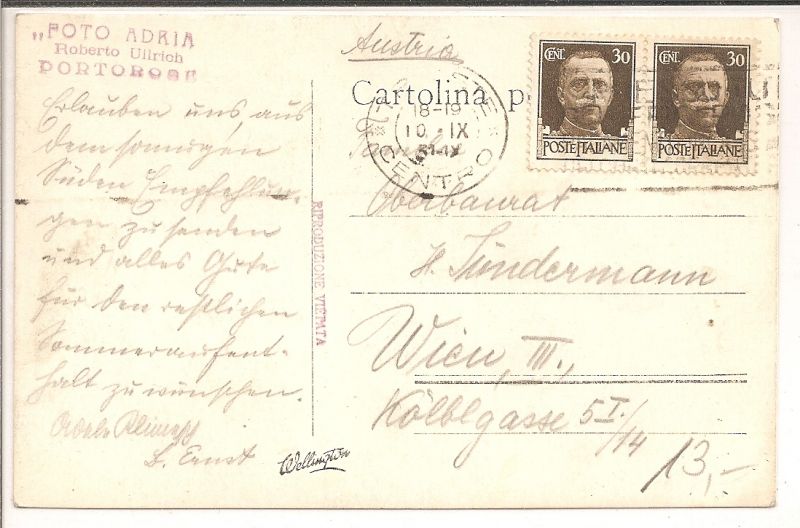 "FOTO ADRIA
Roberto Ullrich
PORTOROSE
Erlauben uns, aus
dem sonnigen
Süden Empfehlun-
gen zu senden
und alles Gute
für den restlichen
Sommeraufent-
halt zu wünschen.
B. Ernst
Wellington
RIPRODUZIONE VIETATA
Austria
Cartolina p
18-19
10.IX
CENTRO
CENT. 30
POSTE ITALIANE
CENT. 30
POSTE ITALIANE
Oberbaurat
H. Sündermann
Wien, III.,
Kölblgasse 5 I./14
13,-